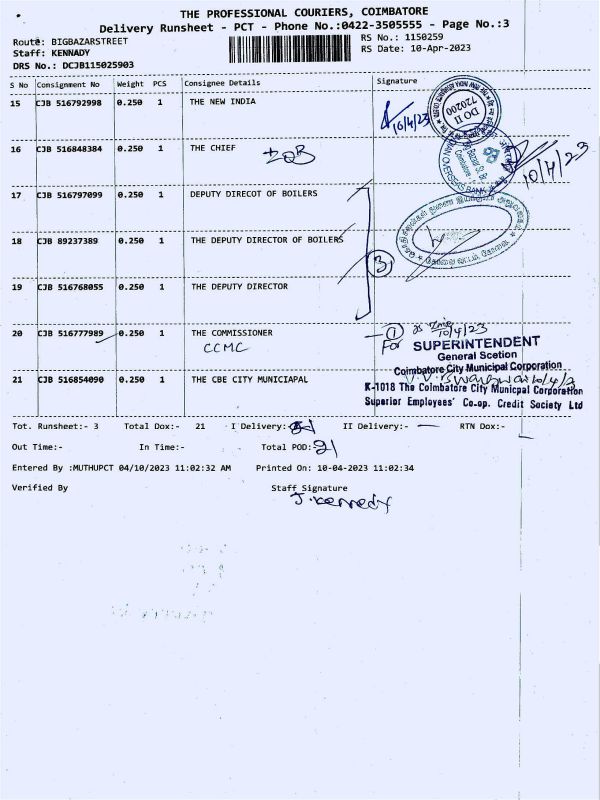 THE PROFESSIONAL COURIERS, COIMBATORE
Delivery Runsheet - PCT - Phone No.:0422-3505555 - Page No.:3
Route: BIGBAZARSTREET
RS No.: 1150259
Staff: KENNADY
RS Date: 10-Apr-2023
DRS No.: DCJB115025903
S No Consignment No Weight PCS Consignee Details Signature
15 CJB 516792998 0.250 1 THE NEW INDIA
10/4/23
DO II
720200
16 CJB 516848384 0.250 1 THE CHIEF
IOB
10/4/23
OVERSEAS BANK
17 CJB 516797099 0.250 1 DEPUTY DIRECOT OF BOILERS
18 CJB 89237389 0.250 1 THE DEPUTY DIRECTOR OF BOILERS
3
19 CJB 516768055 0.250 1 THE DEPUTY DIRECTOR
20 CJB 516777989 0.250 1 THE COMMISSIONER
CCMC
1
10/4/23
For SUPERINTENDENT
General Scetion
Coimbatore City Municipal Corporation
21 CJB 516854090 0.250 1 THE CBE CITY MUNICIAPAL
K-1018 The Coimbatore City Municpal Corporation
Superior Employees' Co-op. Credit Society Ltd
Tot. Runsheet:- 3 Total Dox:- 21 I Delivery:- II Delivery:- RTN Dox:-
Out Time:- In Time:- Total POD:- 21
Entered By :MUTHUPCT 04/10/2023 11:02:32 AM Printed On: 10-04-2023 11:02:34
Verified By Staff Signature
J. Kennedy